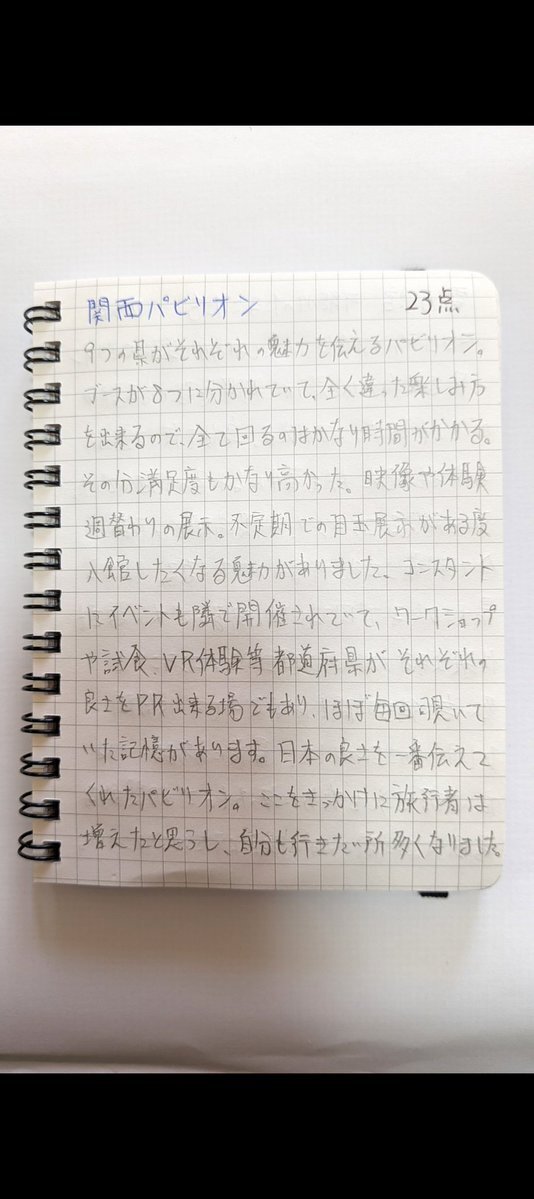 関西パビリオン 23点
9つの県がそれぞれの魅力を伝えるパビリオン。
ブースが8つに分かれていて、全く違った楽しみ方
を出来るので、全て回るのはかなり時間がかかる。
その分満足度もかなり高かった。映像や体験
週替わりの展示。不定期での目玉展示がある度
入館したくなる魅力がありました。コンスタント
にイベントも隣で開催されていて、ワークショップ
や試食、VR体験等都道府県がそれぞれの
良さをPR出来る場でもあり、ほぼ毎回覗いて
いた記憶があります。日本の良さを一番伝えて
くれたパビリオン。ここをきっかけに旅行者は
増えたと思うし、自分も行きたい所多くなりました。